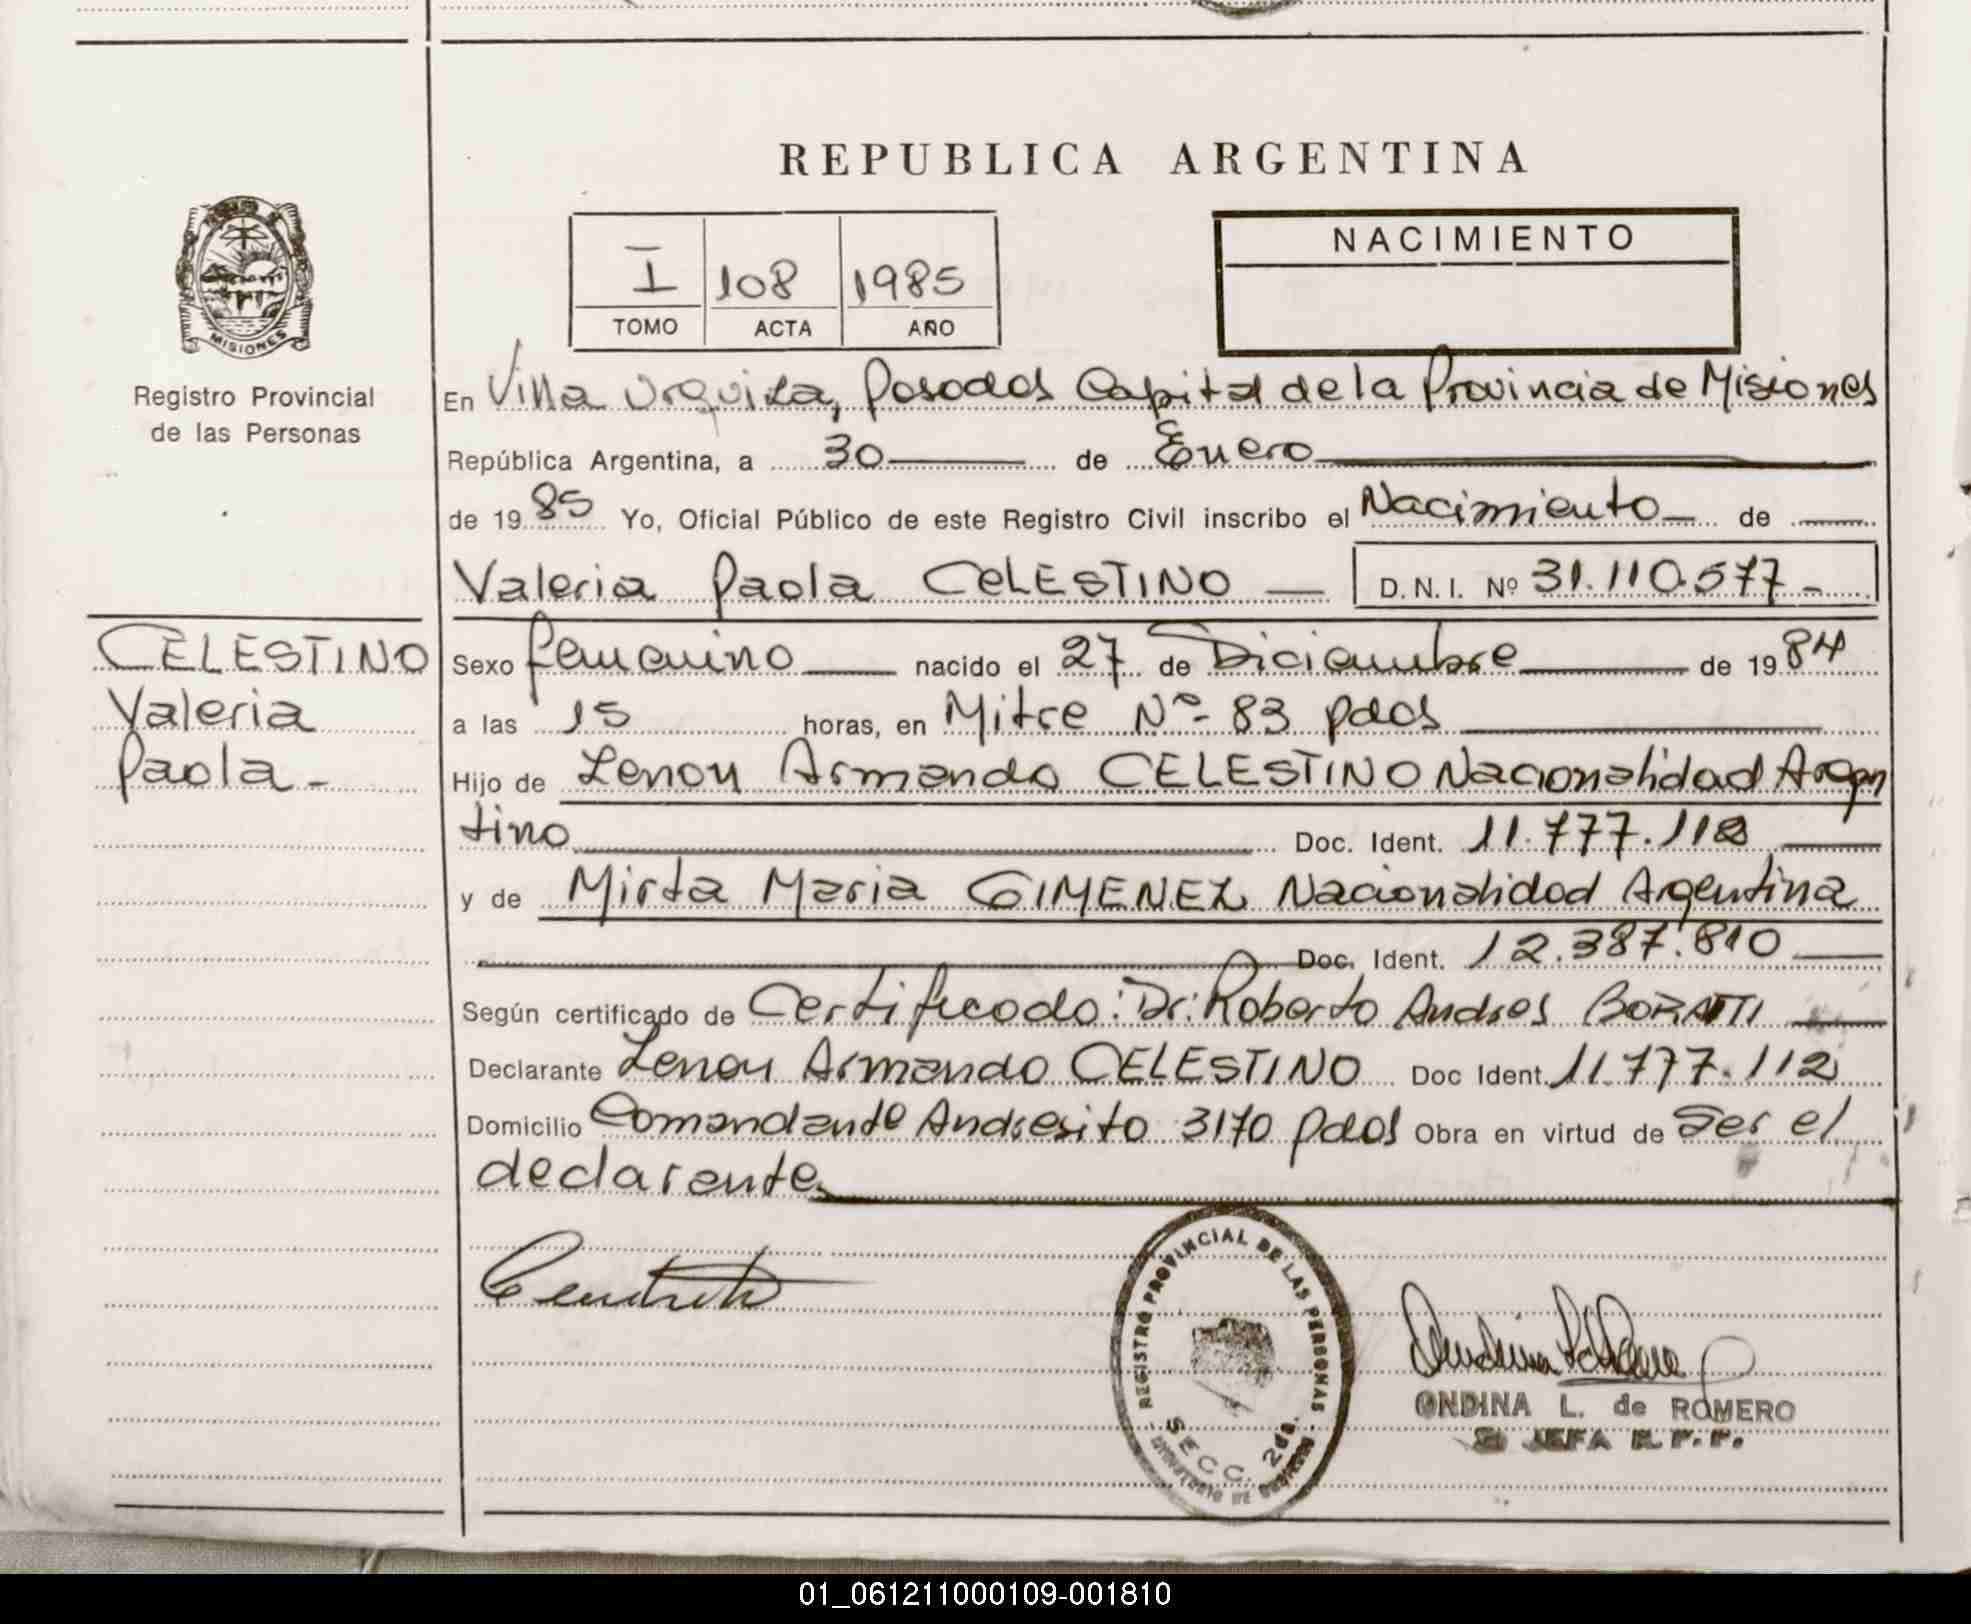 REPUBLICA ARGENTINA
I 108 1985
TOMO ACTA AÑO
NACIMIENTO
MISIONES
Registro Provincial
de las Personas
En Villa Urquiza, Posadas Capital de la Provincia de Misiones
República Argentina, a 30 de Enero
de 1985 Yo, Oficial Público de este Registro Civil inscribo el Nacimiento de
Valeria Paola CELESTINO D.N.I. Nº 31.110.577-
CELESTINO
Valeria
Paola-
Sexo femenino nacido el 27 de Diciembre de 1984
a las 15 horas, en Mitre Nº- 83 pdas
Hijo de Lenou Armando CELESTINO Nacionalidad Argen
tino Doc. Ident. 11.777.112
y de Mirta Maria GIMENEZ Nacionalidad Argentina
Doc. Ident. 12.387.810
Según certificado de Certificado: Dr: Roberto Andres BORATTI
Declarante Lenou Armando CELESTINO Doc Ident. 11.777.112
Domicilio Comandante Andresito 3170 pdas Obra en virtud de Ser el
declarante
REGISTRO PROVINCIAL DE LAS PERSONAS
SECC. 2da.
ONDINA L. de ROMERO
JEFA R.P.P.
01_061211000109-001810